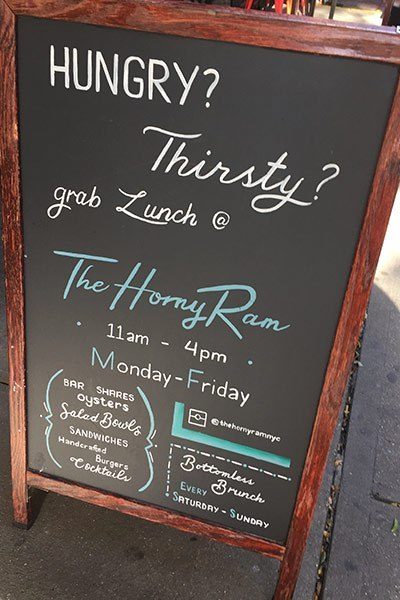 HUNGRY?
Thirsty?
grab Lunch @
The Horny Ram
11am - 4pm
Monday-Friday
BAR SHARES
oysters
Salad Bowls
SANDWICHES
Handcrafted
Burgers
Cocktails
@thehornyramnyc
Bottomless
Brunch
EVERY
SATURDAY - SUNDAY